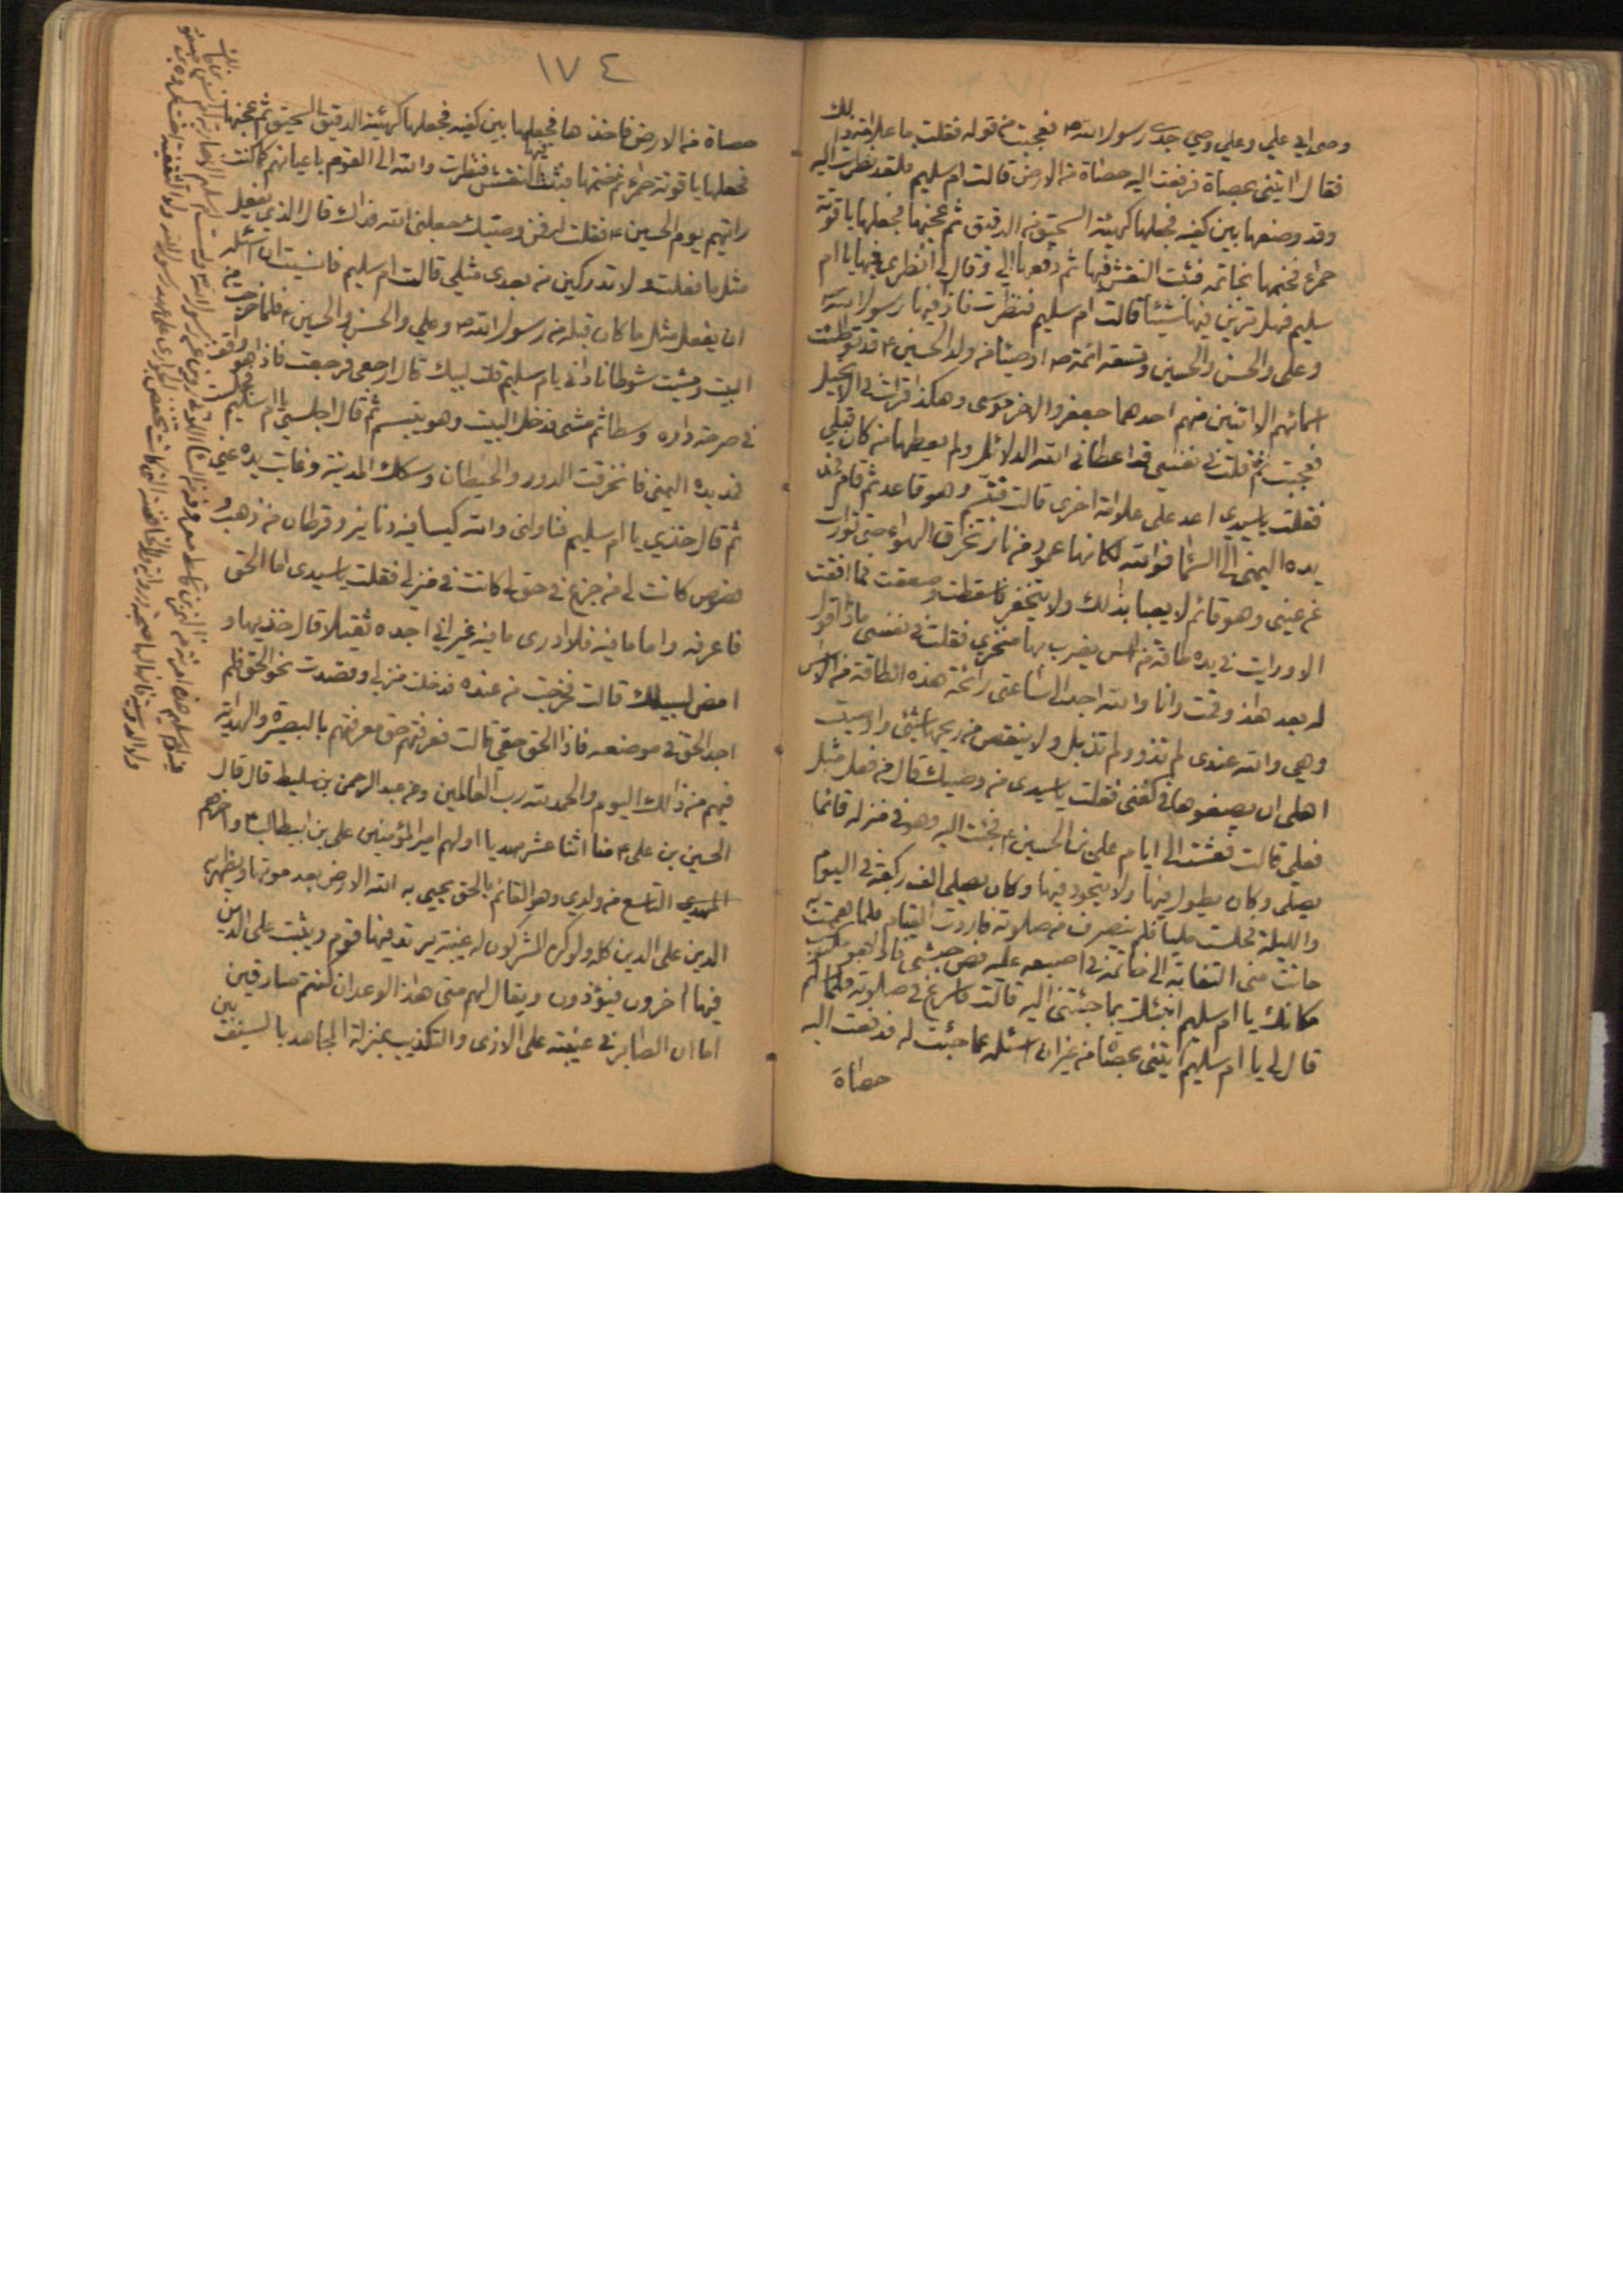 وصى ابي علي وعلي وصي جدي رسول الله ص فعجبت من قوله فقلت ما علامة ذلك
فقال ايتني بحصاة فرفعت اليه حصاة من الارض قالت ام سليم فلقد نظرت اليه
وقد وضعها بين كفيه فجعلها كهيئة السحيق من الدقيق ثم عجنها فجعلها ياقوتة
حمراء فختمها بخاتمه فثبت النقش فيها ثم دفعها الي وقال لي انظري فيها يا ام
سليم فهل ترين فيها شيئا قالت ام سليم فنظرت فاذ فيها رسول الله ص
وعلي والحسن والحسين وتسعة ائمة ص اوصيا من ولد الحسين ع قد توطئت
اسمائهم الا اثنين منهم احدهما جعفر والاخر موسى وهكذا قرات في الانجيل
فعجبت ثم قلت في نفسي قد اعطاني الله الدلائل ولم يعطها من كان قبلي
فقلت يا سيدي اعد علي علامة اخرى قالت فتبسم وهو قاعد ثم قام فمد
يده اليمنى الى السما فوالله لكانها عمود من نار تخترق الهواء حتى توارت
عن عيني وهو قائم لا يعبا بذلك ولا يتحفز فاسقطت وصعقت فما افقت
الا ورايت في يده طاقة من اس يضرب بها منخري فقلت في نفسي ماذا اقول
له بعد هذا وقمت وانا والله اجد الى ساعتي رائحة هذه الطاقة من الاس
وهي والله عندي لم تذو ولم تذبل ولا ينقص من ريحها شيئ واوصيت
اهلي ان يضعوها في كفني فقلت يا سيدي من وصيك قال من فعل مثل
فعلي قالت فعشت الى ايام علي بن الحسين ع فجئت اليه وهو في منزله قائما
يصلي وكان يطول فيها ولا يتحوز فيها وكان يصلي الف ركعة في اليوم
والليلة فجلست مليا فلم ينصرف من صلاته فاردت القيام فلما هممت به
حانت مني التفاتة الى خاتمه في اصبعه عليه فص حبشي فاذا هو مكتوب
مكانك يا ام سليم انبئك بما جئتني اليه قالت فاسرع في صلوته فلما سلم
قال لي يا ام سليم ايتني بحصاة من غير ان اسئله عما جئت له فدفعت اليه
حصاة
١٧٤
حصاة من الارض فاخذها فجعلها بين كفيه فجعلها كهيئة الدقيق السحيق ثم عجنها
فجعلها ياقوتة حمراء ثم ختمها فثبت فيها النقش فنظرت والله الى القوم باعيانهم كما كنت
رايتهم يوم الحسين ع فقلت له فمن وصيك جعلني الله فداك قال الذي يفعل
مثل ما فعلت ولا تدركين من بعدي مثلي قالت ام سليم فانسيت ان اسئله
ان يفعل مثل ما كان قبله من رسول الله ص وعلي والحسن والحسين ع فلما خرجت من
البيت ومشيت شوطا ناداني يام سليم قلت لبيك قال ارجعي فرجعت فاذا هو واقف
في صرحة داره وسطا ثم مشى فدخل البيت وهو يتبسم ثم قال اجلسي يا ام سليم فجلست
فمد يده اليمنى فانخرقت الدور والحيطان وسكك المدينة وغابت يده عني
ثم قال خذي يا ام سليم فناولني والله كيسا فيه دنانير وقرطان من ذهب و
فصوص كانت لي من جزع في حق لي كانت في منزلي فقلت يا سيدي اما الحق
فاعرفه واما ما فيه فلا ادري ما فيه غير اني اجده ثقيلا قال خذيها و
امض لسبيلك قالت فخرجت من عنده فدخلت منزلي وقصدت نحو الحق فلم
اجد الحق في موضعه فاذا الحق حقي قالت فعرفتهم حق معرفتهم بالبصيرة والهداية
فيهم من ذلك اليوم والحمد لله رب العالمين وعن عبد الرحمن بن سليط قال قال
الحسين بن علي ع منا اثنا عشر مهديا اولهم امير المؤمنين علي بن ابيطالب ع واخرهم
المهدي التاسع من ولدي وهو القائم بالحق يحيي به الله الارض بعد موتها ويظهر به
الدين على الدين كله ولو كره المشركون له غيبة يرتد فيها قوم ويثبت على الدين
فيها اخرون فيؤذون ويقال لهم متى هذا الوعد ان كنتم صادقين
اما ان الصابر في غيبته على الاذى والتكذيب بمنزلة المجاهد بالسيف بين